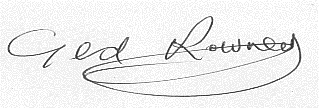 Ged Rowney